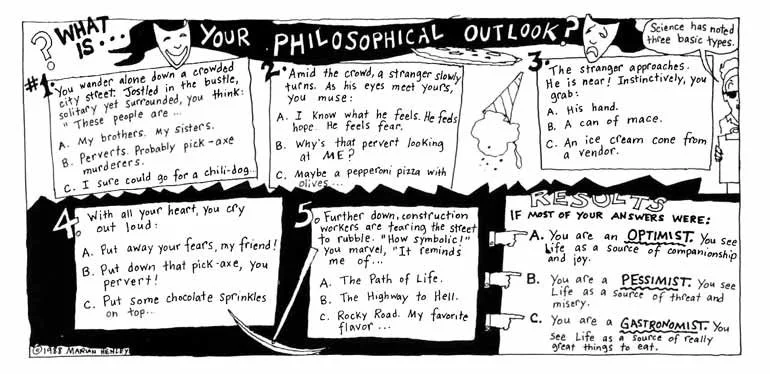 WHAT IS... YOUR PHILOSOPHICAL OUTLOOK?
Science has noted
three basic types.
#1.
You wander alone down a crowded
city street. Jostled in the bustle,
solitary yet surrounded, you think:
"These people are...
A. My brothers. My sisters.
B. Perverts. Probably pick-axe
murderers.
C. I sure could go for a chili-dog...
2.
Amid the crowd, a stranger slowly
turns. As his eyes meet yours,
you muse:
A. I know what he feels. He feels
hope. He feels fear.
B. Why's that pervert looking
at ME?
C. Maybe a pepperoni pizza with
olives...
3.
The stranger approaches.
He is near! Instinctively, you
grab:
A. His hand.
B. A can of mace.
C. An ice cream cone from
a vendor.
4.
With all your heart, you cry
out loud:
A. Put away your fears, my friend!
B. Put down that pick-axe, you
pervert!
C. Put some chocolate sprinkles
on top...
5.
Further down, construction
workers are tearing the street
to rubble. "How symbolic!"
You marvel, "It reminds
me of...
A. The Path of Life.
B. The Highway to Hell.
C. Rocky Road. My favorite
flavor...
RESULTS
IF MOST OF YOUR ANSWERS WERE:
A. You are an OPTIMIST. You see
Life as a source of companionship
and joy.
B. You are a PESSIMIST. You see
Life as a source of threat and
misery.
C. You are a GASTRONOMIST. You
see Life as a source of really
great things to eat.
©1988 MARIAN HENLEY